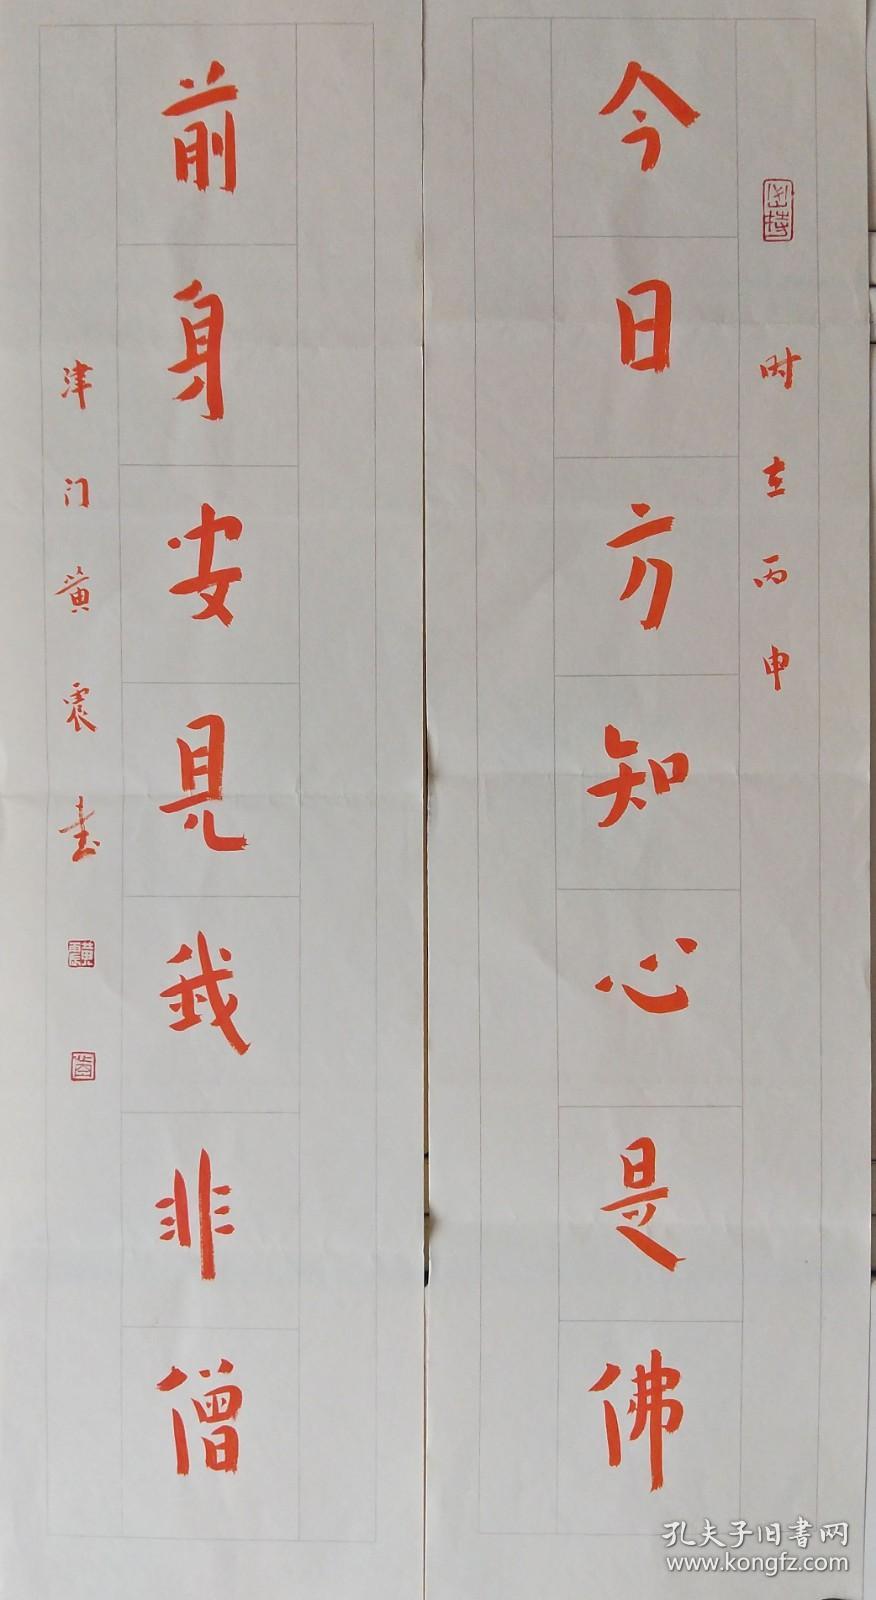 时在丙申
今日方知心是佛
前身安見我非僧
津门黄震书
黄震
孔夫子旧書网
www.kongfz.com